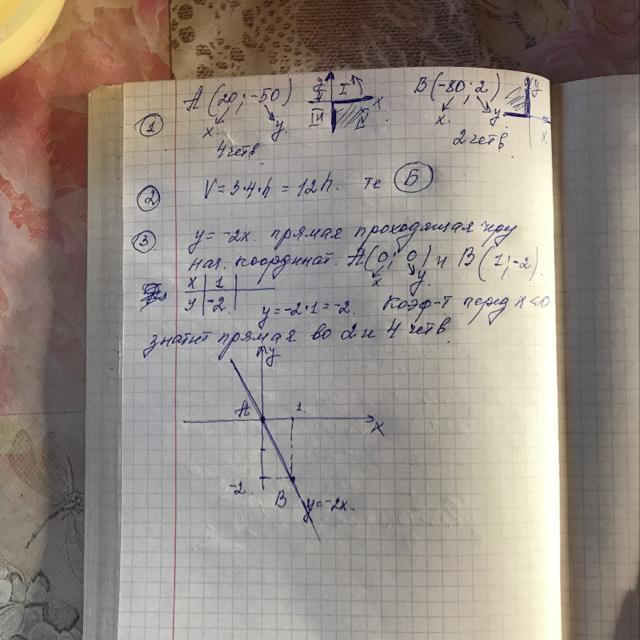 ① A(20; -50) B(-80; 2)
x y x y
4 четв. 2 четв.
② V = 3·4·h = 12h. те Б
③ y = -2x. прямая проходящая
нач. координат. A(0; 0) и B(1; -2).
x y
x 1
y -2 y = -2·1 = -2. Коэф-т перед x<0
значит прямая во 2 и 4 четв.
y
A 1 x
-2
B y = -2x.